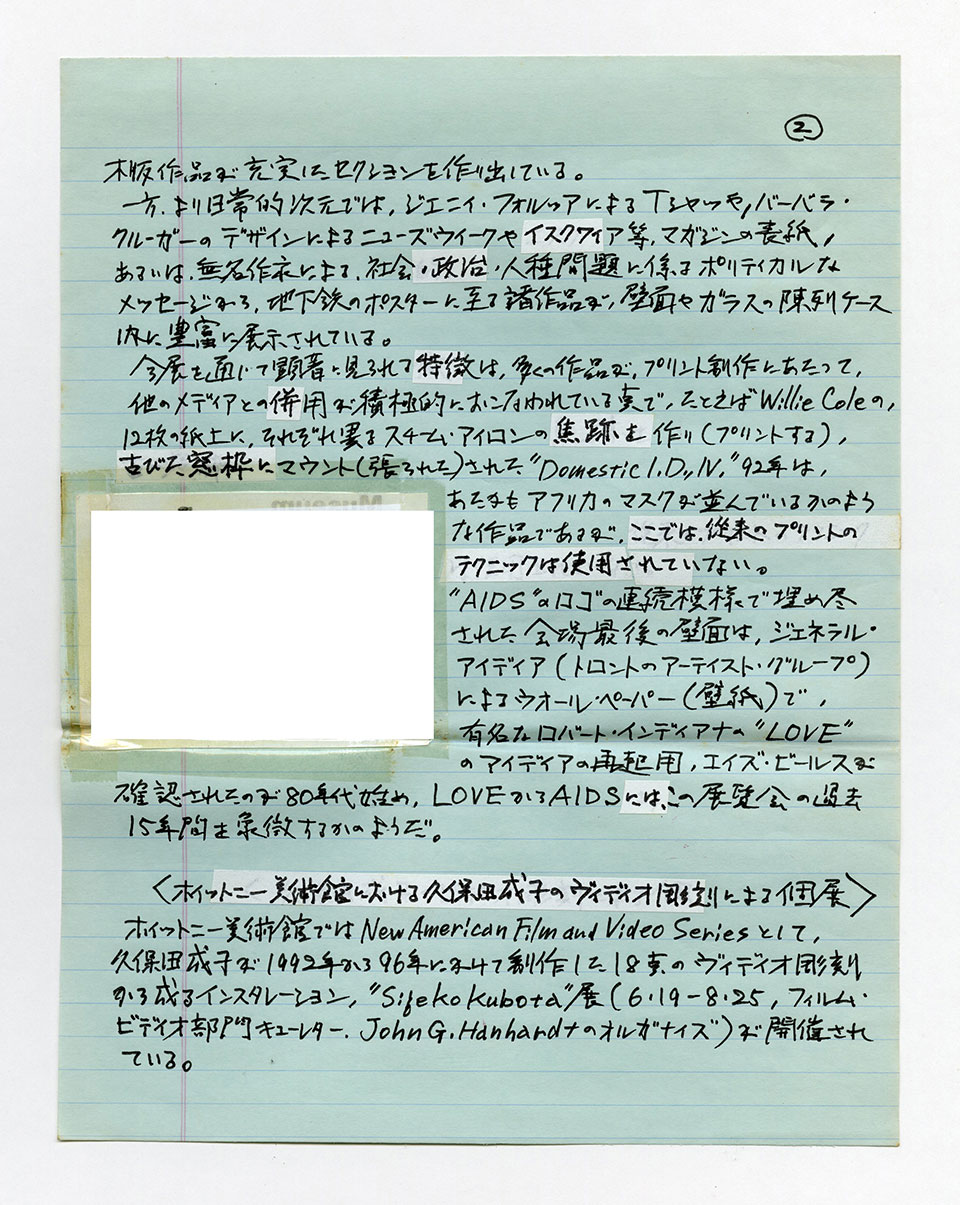 ②
木版作品が充実したセクションを作り出している。
一方、より日常的次元では、ジェニイ・フォルツアによるTシャツや、バーバラ・
クルーガーのデザインによるニューズウィークやイスクワイア等、マガジンの表紙、
あるいは、無名作家による、社会・政治・人種問題に係るポリティカルな
メッセージから、地下鉄のポスターに至る諸作品が、壁面やガラスの陳列ケース
内に豊富に展示されている。
全展を通じて顕著に見られて特徴は、多くの作品が、プリント制作にあたって、
他のメディアとの併用が積極的におこなわれている点で、たとえばWillie Coleの、
12枚の紙上に、それぞれ異るスチーム・アイロンの焦跡を作り(プリントする)、
古びた窓枠にマウント(張られた)された"Domestic I.D., IV," 92年は、
Museum
あたかもアフリカのマスクが並んでいるかのよう
な作品であるが、ここでは、従来のプリントの
テクニックは使用されていない。
"AIDS"のロゴの連続模様で埋め尽
された会場最後の壁面は、ジェネラル・
アイディア(トロントのアーティスト・グループ)
によるウオール・ペーパー(壁紙)で、
有名なロバート・インディアナの"LOVE"
のアイディアの再起用、エイズ・ビールスが
確認されたのが80年代始め、LOVEからAIDSには、この展覧会の過去
15年間を象徴するかのようだ。
〈ホイットニー美術館における久保田成子のヴィディオ彫刻による個展〉
ホイットニー美術館ではNew American Film and Video Seriesとして、
久保田成子が1992年から96年にかけて制作した18点のヴィディオ彫刻
から成るインスタレーション、"Sigeko Kubota"展(6・19-8・25、フィルム・
ビディオ部門キューレター、John G. Hanhardtのオルガナイズ)が開催され
ている。